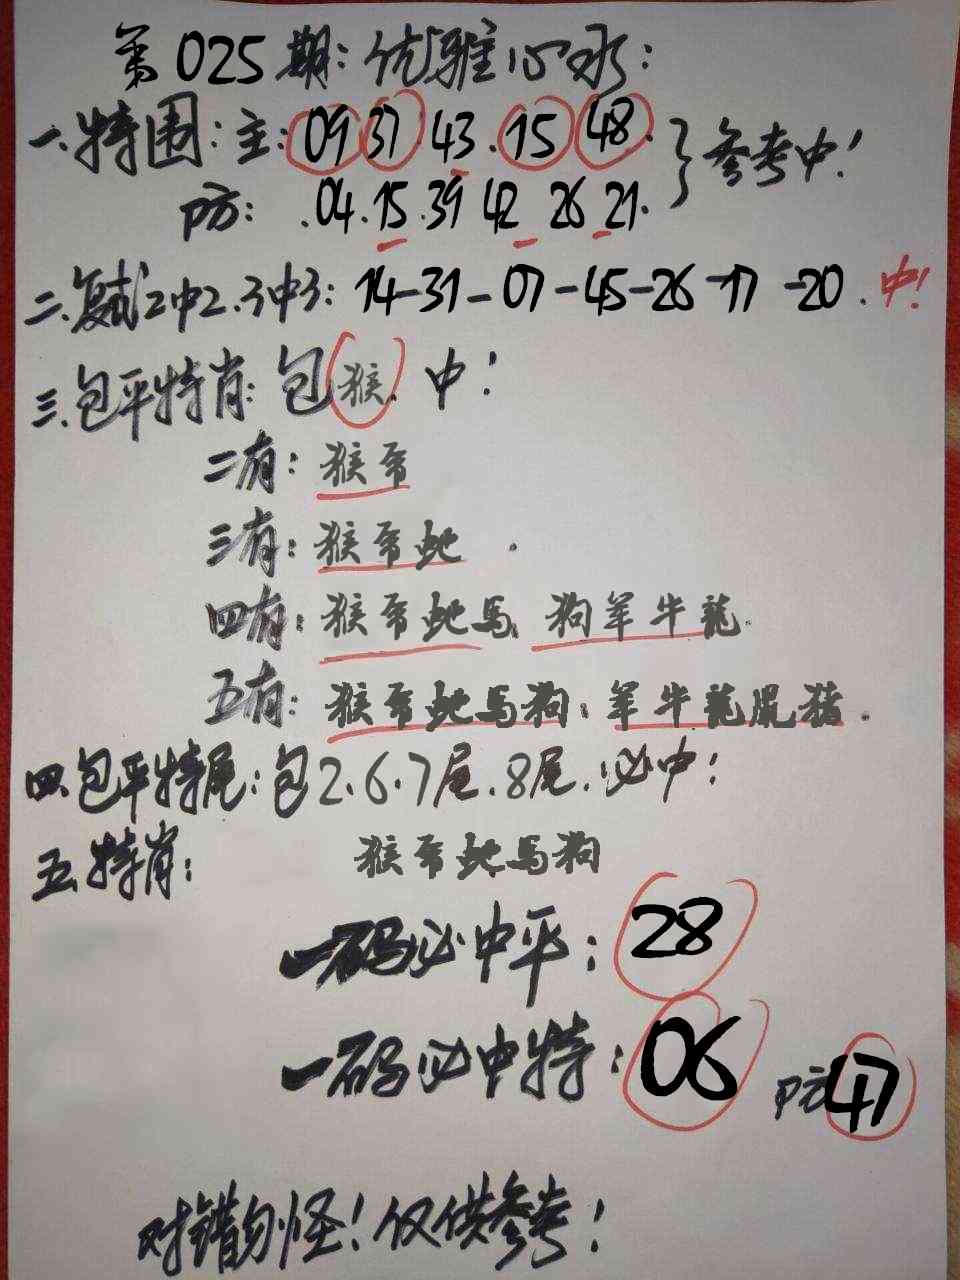 第025期:优雅心水:
一.特围:主:09 37.43.15 48.
防:.04.15.39 42 26 21.
参考中!
二.复式2中2.3中3:14-31-07-45-26-17-20.中!
三.包平特肖:包猴.中!
二有:猴帝
三有:猴帝蛇.
四有:猴帝蛇馬.狗羊牛龍.
五有:猴帝蛇馬狗.羊牛龍鼠猪.
四.包平特尾:包2.6.7尾.8尾.必中!
五.特肖:猴帝蛇馬狗
一码必中平:28
一码必中特:06 防47
对错勿怪!仅供参考!